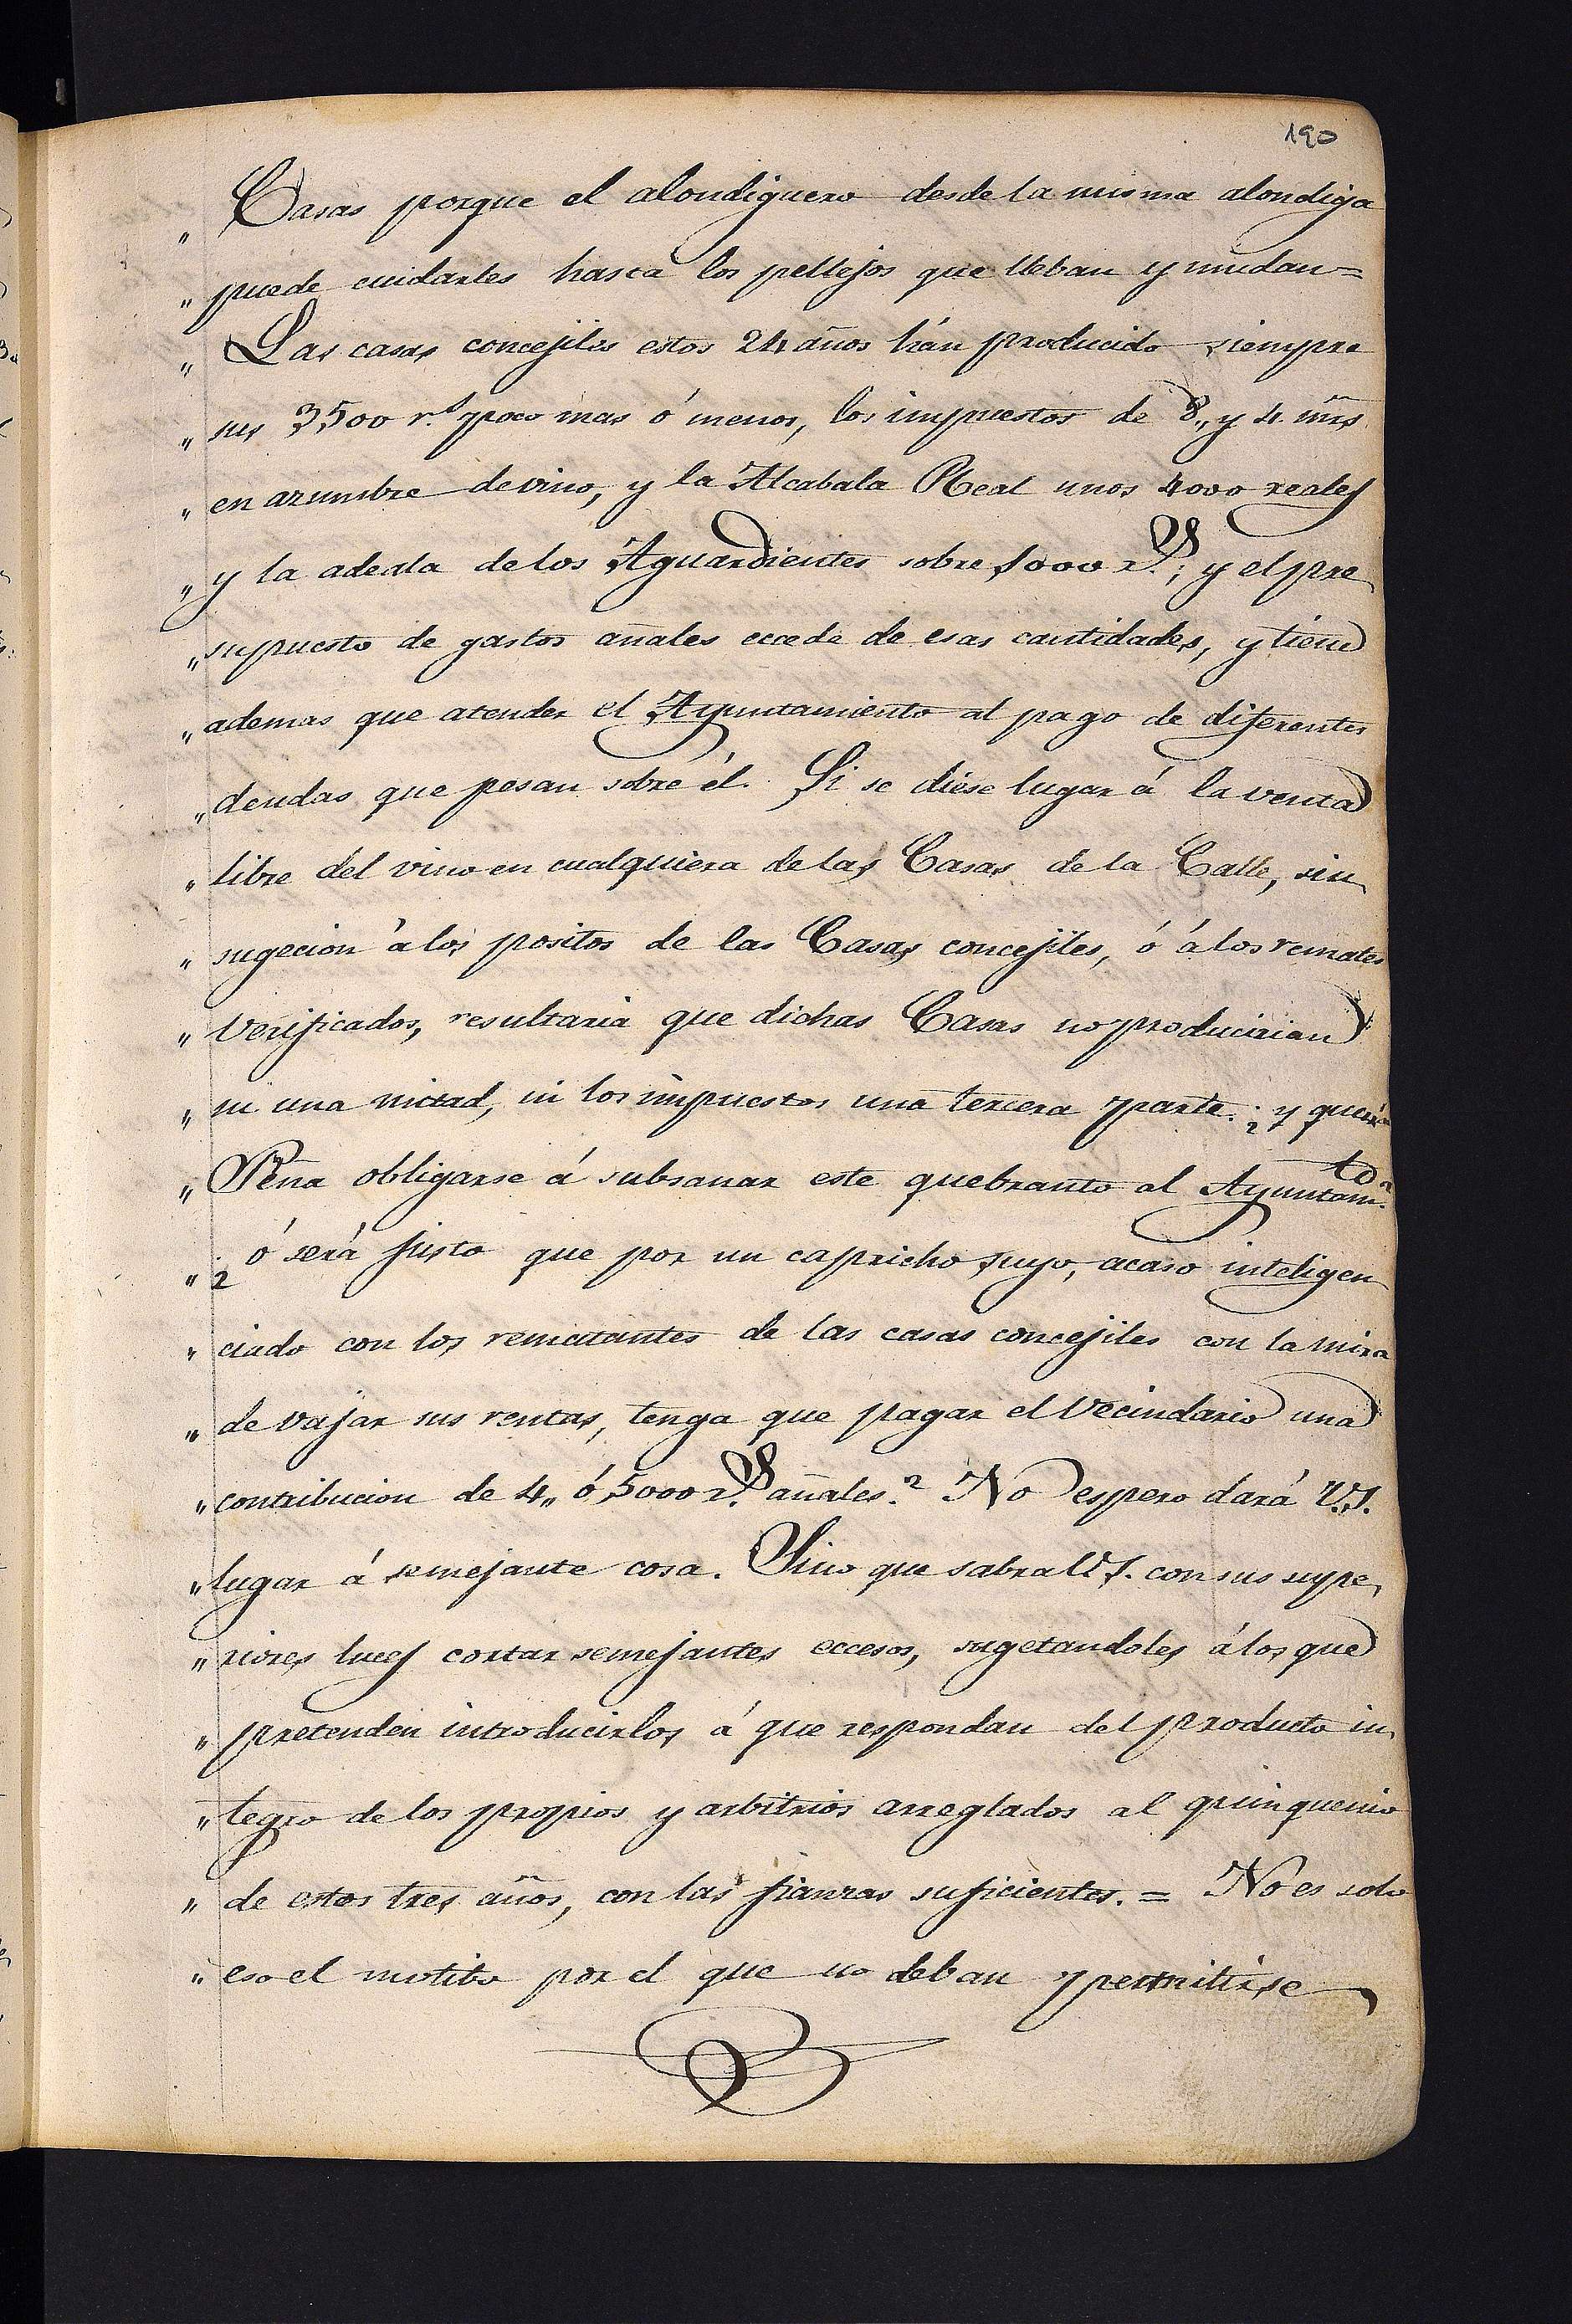 190
„ Casas porque el alondiguero desde la misma alondiga
„ puede cuidarles hasta los pellejos que lleban y mudan=
„ Las casas concejiles estos 24 años hán producido siempre
„ sus 3,500 r.s poco mas ó menos, los impuestos de 8,, y 4 mrs
„ en azumbre de vino, y la Alcabala Real unos 4000 reales
„ y la adeala de los Aguardientes sobre 1000 r.s; y el pre
„ supuesto de gastos añales eccede de esas cantidades, y tiene
„ ademas que atender el Ayuntamiento al pago de diferentes
„ deudas que pesan sobre él. Si se diese lugar á la venta
„ libre del vino en cualquiera de las Casas de la Calle, sin
„ sugecion á los positos de las Casas concejiles, ó á los remates
„ Verificados, resultaria que dichas Casas no producirian
„ ni una mitad, ni los impuestos una tercera parte. ¿y querrá
„ Peña obligarse á subsanar este quebranto al Ayuntam.to?
„ ¿ó será justo que por un capricho suyo, acaso inteligen
„ ciado con los rematantes de las casas concejiles con la mira
„ de vajar sus rentas, tenga que pagar el Vecindario una
„ contribucion de 4,, ó 5000 r.s añales? No espero dará V.S.
„ lugar á semejante cosa. Sino que sabra V.S. con sus supe
„ riores luces cortar semejantes eccesos, sugetandoles á los que
„ pretenden introducirlos á que respondan del producto in
„ tegro de los propios y arbitrios arreglados al quinquenio
„ de estos tres años, con las fianzas suficientes. = No es solo
„ eso el motibo por el que no deban permitirse